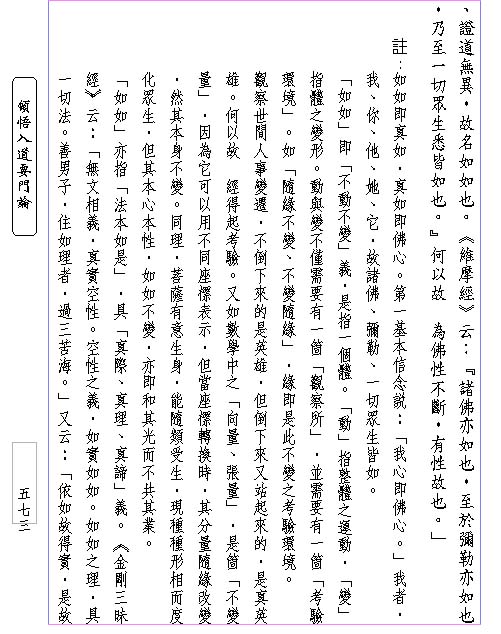 、證道無異，故名如如也。《維摩經》云：『諸佛亦如也，至於彌勒亦如也
，乃至一切眾生悉皆如也。』何以故　為佛性不斷，有性故也。」
註：如如即真如，真如即佛心。第一基本信念說：「我心即佛心。」我者，
我、你、他、她、它，故諸佛、彌勒、一切眾生皆如。
「如如」即「不動不變」義，是指一個體。「動」指整體之運動，「變」
指體之變形。動與變不僅需要有一箇「觀察所」，並需要有一箇「考驗
環境」。如「隨緣不變、不變隨緣」，緣即是此不變之考驗環境。
觀察世間人事變遷，不倒下來的是英雄，但倒下來又站起來的，是真英
雄。何以故　經得起考驗。又如數學中之「向量、張量」，是箇「不變
量」，因為它可以用不同座標表示，但當座標轉換時，其分量隨緣改變
，然其本身不變。同理，菩薩有意生身，能隨類受生，現種種形相而度
化眾生，但其本心本性，如如不變，亦即和其光而不共其業。
「如如」亦指「法本如是」，具「真際、真理、真諦」義。《金剛三昧
經》云：「無文相義，真實空性。空性之義，如實如如。如如之理，具
一切法。善男子，住如理者，過三苦海。」又云：「依如故得實，是故
頓悟入道要門論
五七三